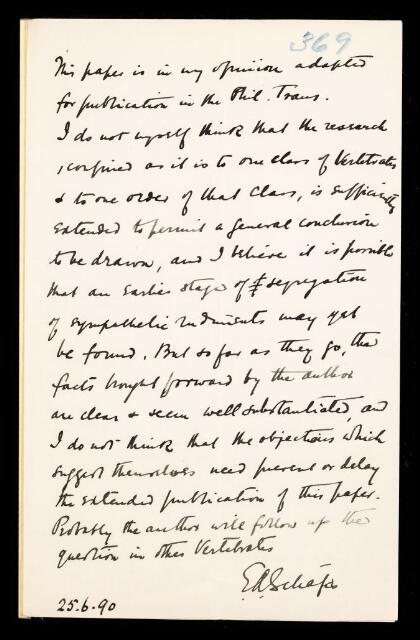 369
This paper is in my opinion adapted
for publication in the Phil. Trans.
I do not myself think that the research
, confined as it is to one class of Vertebrates
& to one order of that Class, is sufficiently
extended to permit a general conclusion
to be drawn, and I believe it is possible
that an earlier stage of segregation
of sympathetic rudiments may yet
be found. But so far as they go, the
facts brought forward by the author
are clear & seem well substantiated, and
I do not think that the objections which
suggest themselves need prevent or delay
the extended publication of this paper.
Probably the author will follow up the
question in other Vertebrates
E.A. Schäfer
25.6.90